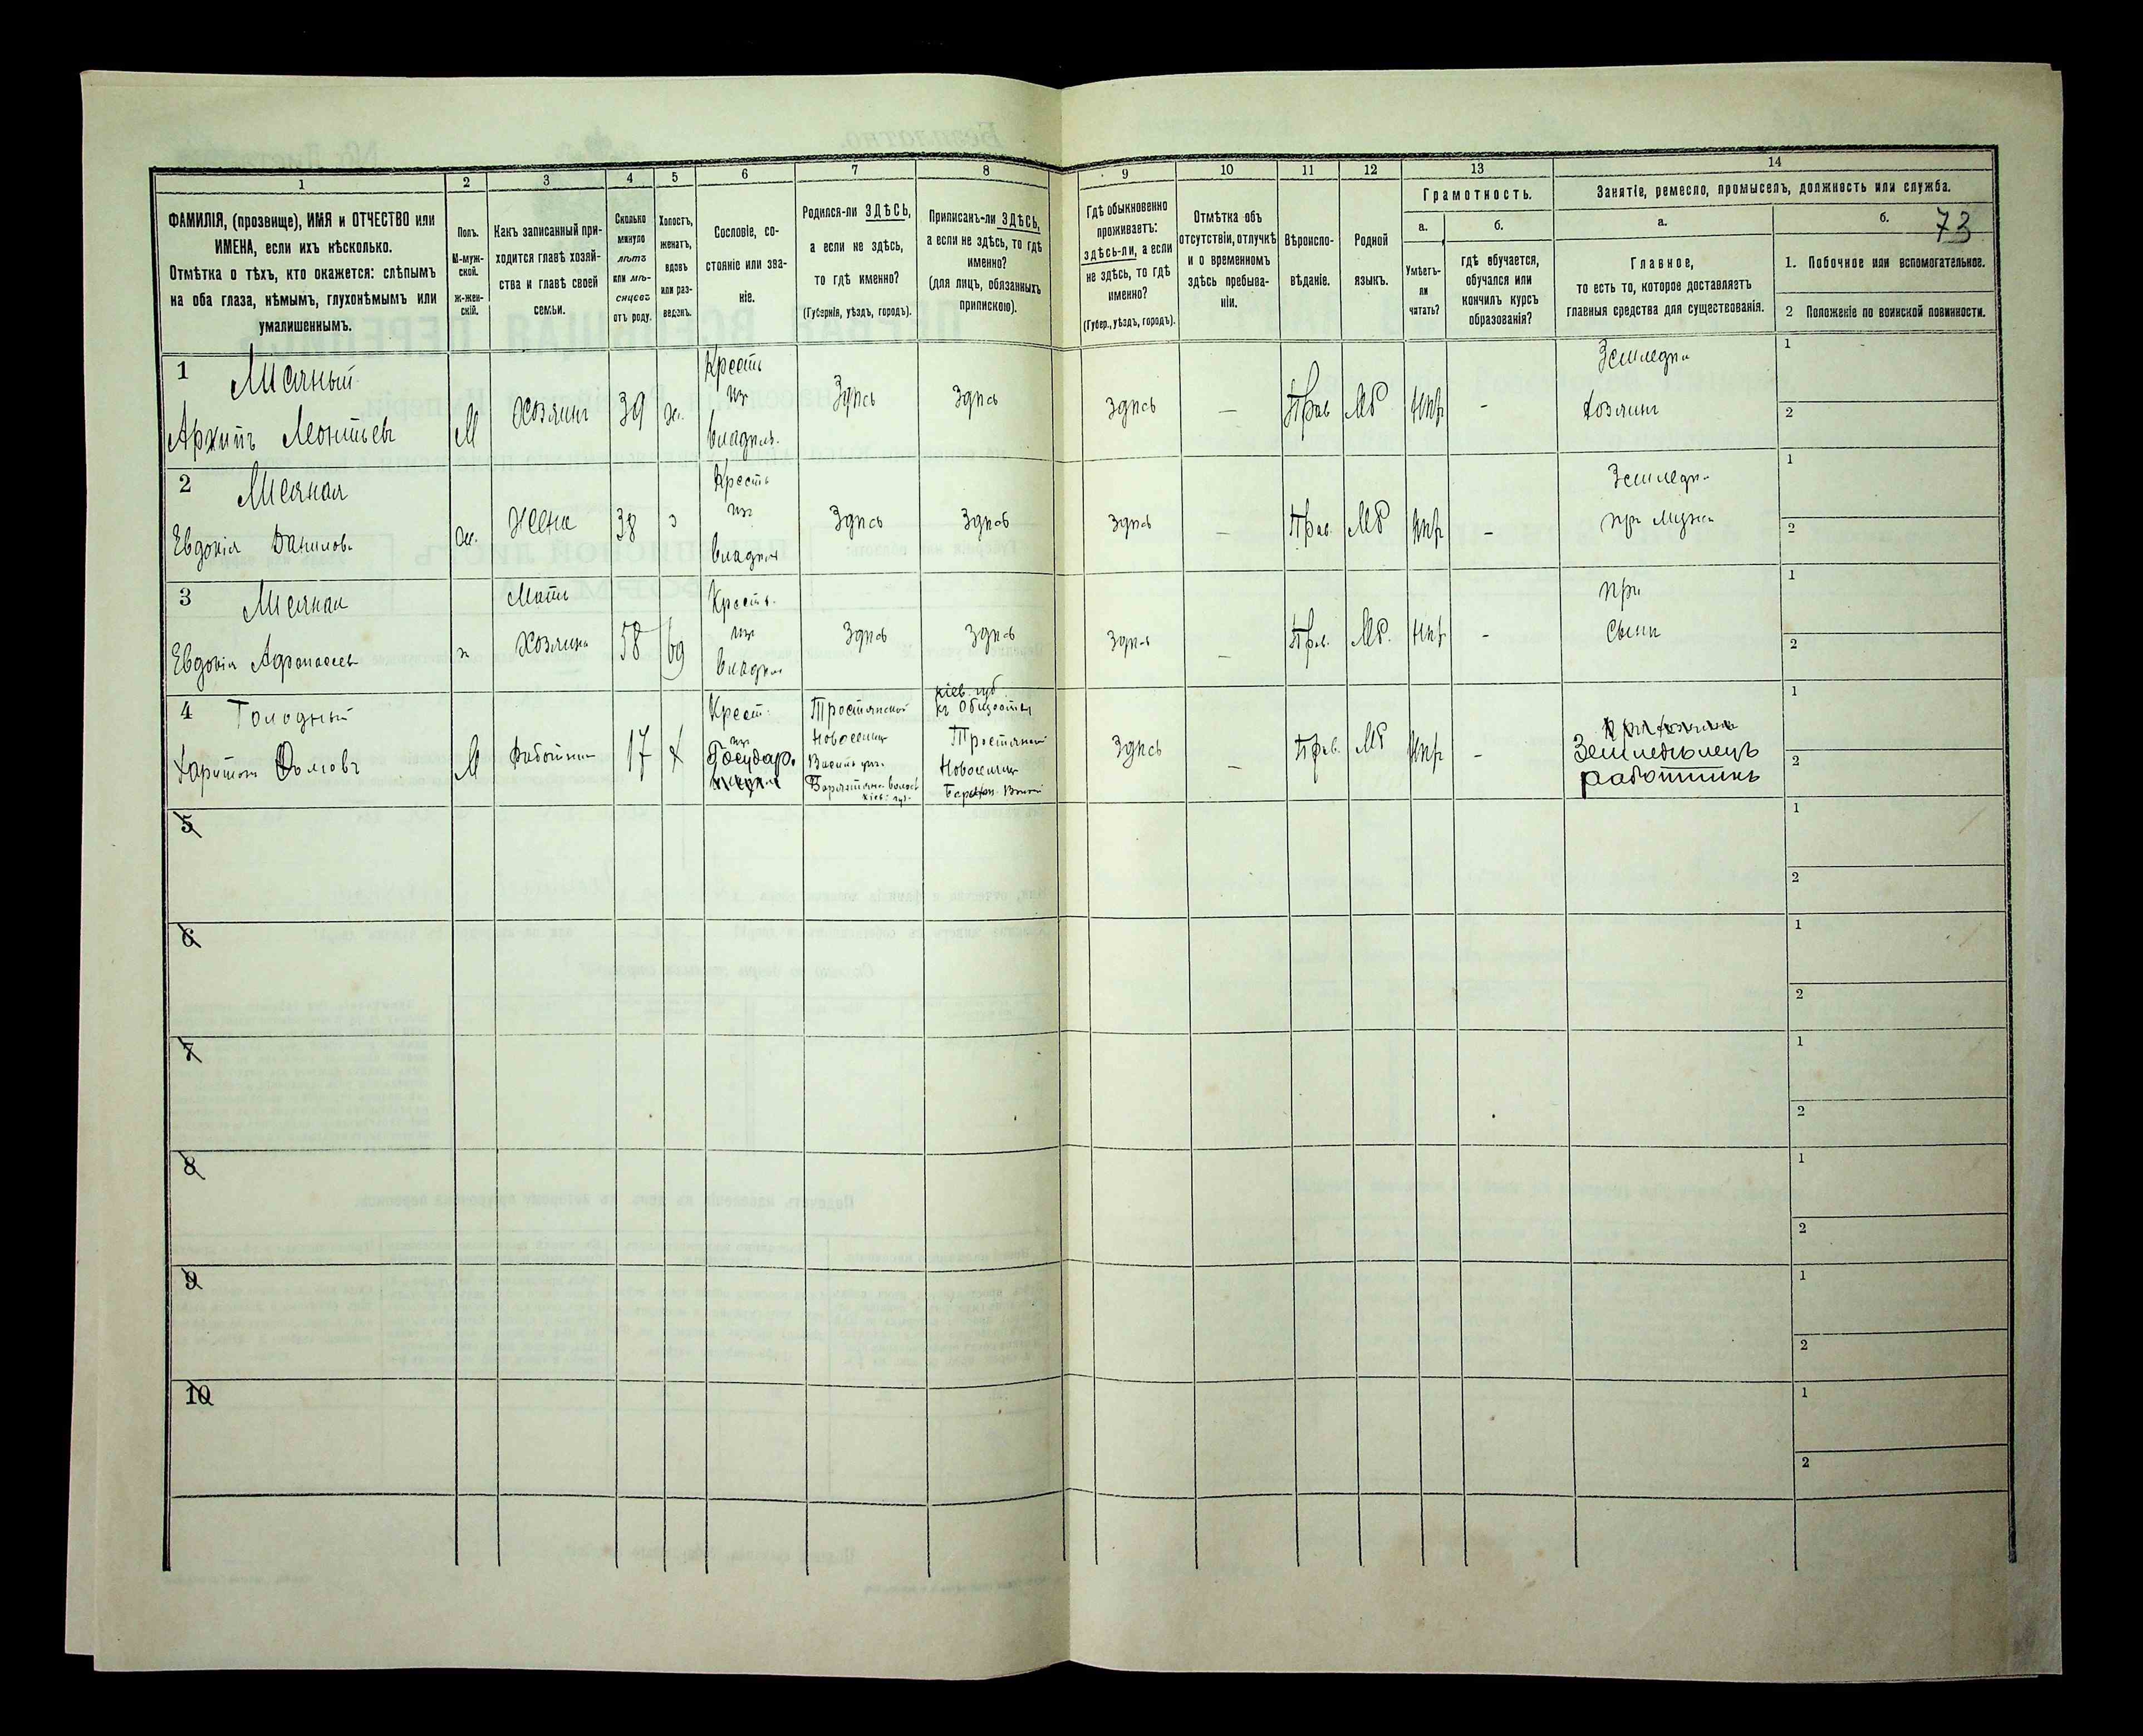 73
1 2 3 4 5 6 7 8 9 10 11 12 13 14
ФАМИЛІЯ, (прозвище), ИМЯ и ОТЧЕСТВО или
ИМЕНА, если ихъ нѣсколько.
Отмѣтка о тѣхъ, кто окажется: слѣпымъ
на оба глаза, нѣмымъ, глухонѣмымъ или
умалишеннымъ.
Полъ.
М-муж-
ской.
ж-жен-
скій.
Какъ записанный при-
ходится главѣ хозяй-
ства и главѣ своей
семьи.
Сколько
минуло
лѣтъ
или мѣ-
сяцевъ
отъ роду.
Холостъ,
женатъ,
вдовъ
или раз-
веденъ.
Сословіе, со-
стояніе или зва-
ніе.
Родился-ли ЗДѢСЬ,
а если не здѣсь,
то гдѣ именно?
(Губернія, уѣздъ, городъ).
Приписанъ-ли ЗДѢСЬ,
а если не здѣсь, то гдѣ
именно?
(для лицъ, обязанныхъ
припискою).
Гдѣ обыкновенно
проживаетъ:
здѣсь-ли, а если
не здѣсь, то гдѣ
именно?
(Губер., уѣздъ, городъ).
Отмѣтка объ
отсутствіи, отлучкѣ
и о временномъ
здѣсь пребыва-
ніи.
Вѣроиспо-
вѣданіе.
Родной
языкъ.
Грамотность.
а.
Умѣетъ-
ли
читать?
б.
гдѣ обучается,
обучался или
кончилъ курсъ
образованія?
Занятіе, ремесло, промыселъ, должность или служба.
а.
Главное,
то есть то, которое доставляетъ
главныя средства для существованія.
б.
1. Побочное или вспомогательное.
2 Положеніе по воинской повинности.
1
Архипъ Леонтьевъ
М
Хозяинъ
39
ж.
Крестъ
изъ
владѣл.
Здѣсь
Здѣсь
Здѣсь
—
Прав
Мр
Нпр
-
Земледѣл
Хозяинъ
1
2
2
Евдокія Данилов
ж.
Жена
38
з
Кресть
изъ
владѣл
Здѣсь
Здѣсь
Здѣсь
—
Прав.
Мр
Нпр
-
Земледѣ
при мужѣ
1
2
3
Евдокія Афанасьев
ж
Мать
Хозяина
58
вд
Кресть.
изъ
владѣл
Здѣсь
Здѣсь
Здѣсь
—
Прав.
Мр.
Нпр
-
при
сынѣ
1
2
4 Голодный
Харитонъ
М
Работник
17
х
Крест.
изъ
Государ.
Новоселица
кіев. губ.
кіев. губ
Новоселица
Здѣсь
—
Прав.
Мр
Нпр
-
Земледѣлецъ
работникъ
1
2
5
1
2
6
1
2
7
1
2
8
1
2
9
1
2
10
1
2